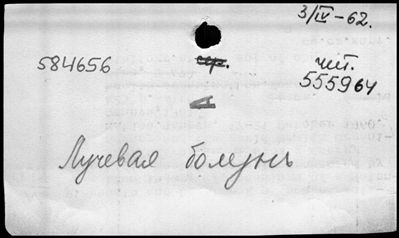 3/IV-62.
584656 сер. чит.
555964
Лучевая болезнь